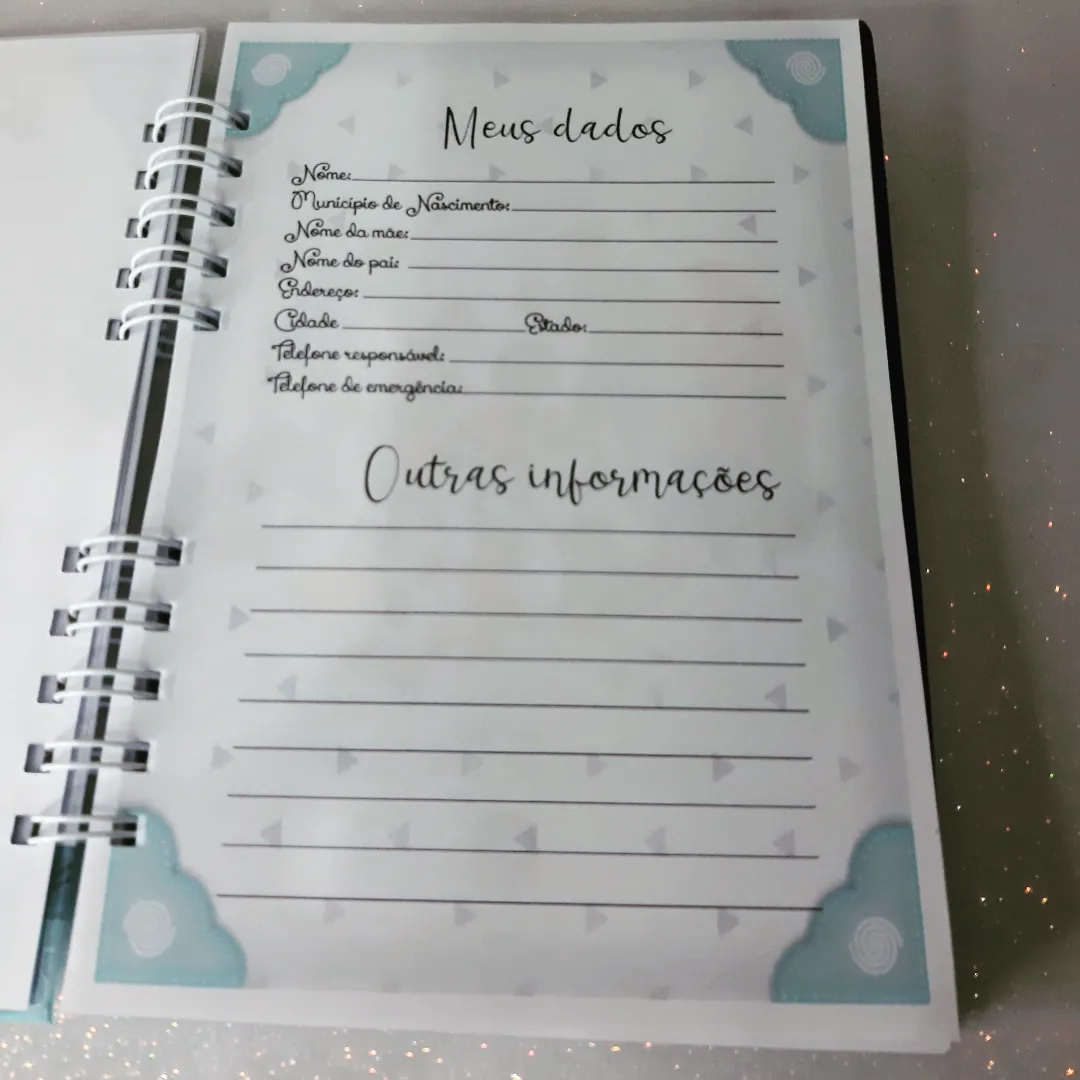 Meus dados
Nome:
Município de Nascimento:
Nome da mãe:
Nome do pai:
Endereço:
Cidade Estado:
Telefone responsável:
Telefone de emergência:
Outras informações